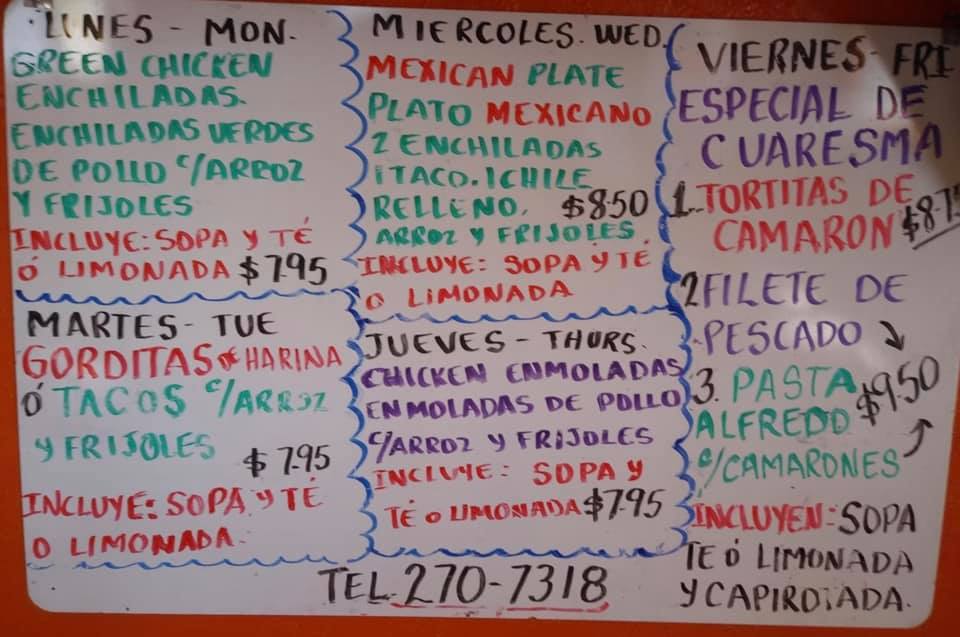 LUNES - MON.
GREEN CHICKEN
ENCHILADAS.
ENCHILADAS VERDES
DE POLLO C/ARROZ
Y FRIJOLES
INCLUYE: SOPA Y TÉ
Ó LIMONADA $7.95
MARTES - TUE
GORDITAS DE HARINA
Ó TACOS C/ARROZ
Y FRIJOLES $7.95
INCLUYE: SOPA Y TÉ
O LIMONADA.
MIERCOLES. WED.
MEXICAN PLATE
PLATO MEXICANO
2 ENCHILADAS
1 TACO. 1 CHILE
RELLENO. $8.50
ARROZ Y FRIJOLES.
INCLUYE: SOPA Y TÉ
O LIMONADA
JUEVES - THURS.
CHICKEN ENMOLADAS
ENMOLADAS DE POLLO
C/ARROZ Y FRIJOLES
INCLUYE: SOPA Y
TÉ O LIMONADA $7.95
VIERNES - FRI
ESPECIAL DE
CUARESMA
1. TORTITAS DE
CAMARON $8.75
2 FILETE DE
PESCADO
3. PASTA $9.50
ALFREDO
C/CAMARONES
INCLUYEN: SOPA
TE Ó LIMONADA
Y CAPIROTADA.
TEL. 270-7318